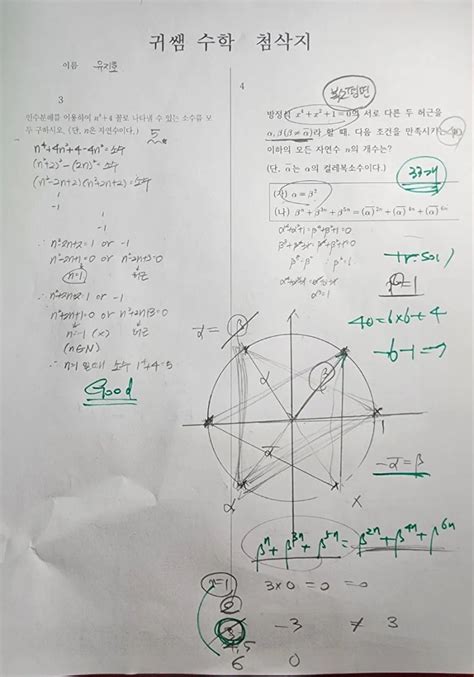 귀쌤 수학 첨삭지
이름 유지호
3
인수분해를 이용하여 n⁴+4 꼴로 나타낼 수 있는 소수를 모
두 구하시오. (단, n은 자연수이다.)
5
n⁴+4n²+4-4n²=소수
(n²+2)²-(2n)²=소수
(n²-2n+2)(n²+2n+2)=소수
1
-1
∴ n²-2n+2=1 or -1
n²-2n+1=0 or n²-2n+3=0
n=1
허근
∴ n²+2n+2=1 or -1
n²+2n+1=0 or n²+2n+3=0
n=-1 (X) 허근
(n∈N)
소수 1⁴+4=5
Good
4
복소평면
방정식 x⁴+x²+1=0의 서로 다른 두 허근을
α, β(β≠ᾱ)라 할 때, 다음 조건을 만족시키는 40
이하의 모든 자연수 n의 개수는?
(단, ᾱ는 α의 켤레복소수이다.)
33개
(가) α=β²
(나) βⁿ+β³ⁿ+β⁵ⁿ=(ᾱ)²ⁿ+(ᾱ)⁴ⁿ+(ᾱ)⁶ⁿ
tr.sol)
40=6×6+4
ᾱ=
β
α
β
1
ᾱ
α
X
-ᾱ=β
βⁿ+β³ⁿ+β⁵ⁿ=β²ⁿ+β⁴ⁿ+β⁶ⁿ
n=1
3×0=0=0
2
3
-3 ≠ 3
4,5
6
0